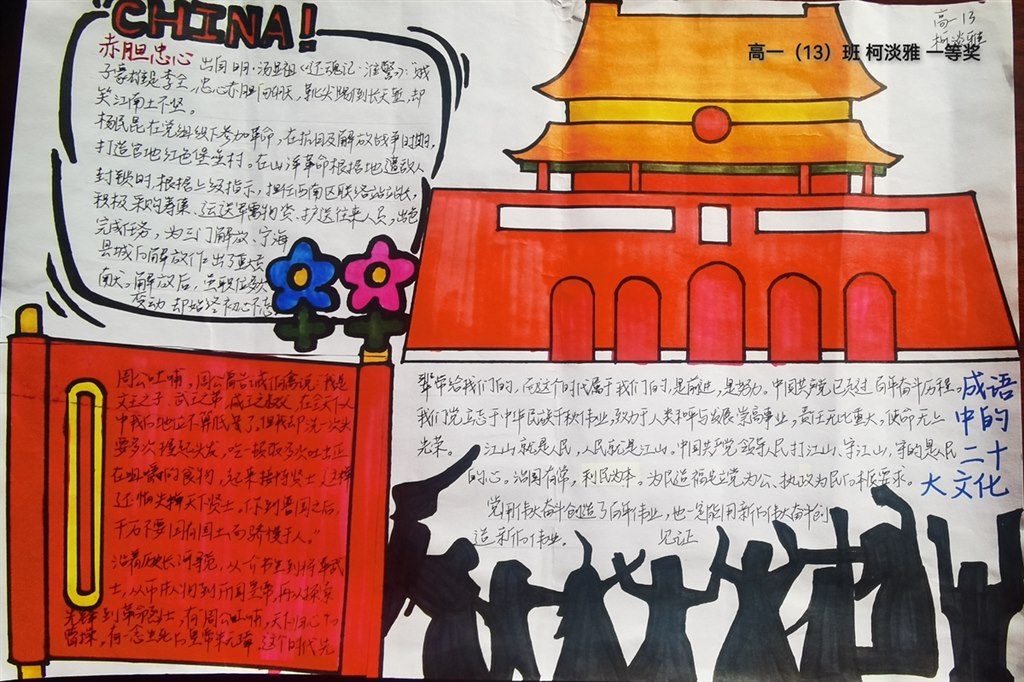 "CHINA!
高一13
柯淡雅
高一（13）班 柯淡雅 一等奖
赤胆忠心 出自明·汤显祖《还魂记·淮警》：“贼
子豪雄是李全，忠心赤胆向胡天，靴尖踢倒长天堑，却
笑江南土不坚。
杨民昆在党组织下参加革命，在抗日及解放战争时期，
打造官地红色堡垒村。在山洋革命根据地遭敌人
封锁时，根据上级指示，担任西南区联络站站长，
积极采购筹集、运送军需物资，护送往来人员，出色
完成任务，为三门解放、宁海
县城的解放作出了重大贡
献。解放后，
变动 却始终初心不忘
周公吐哺，周公告诫伯禽说“我是
文王之子 武王之弟，成王之叔父，在全天下人
中我的地位不算低了，但我却洗一次头
要多次握起头发，吃一顿饭多次吐出正
在咀嚼的食物，起来接待贤士，这样
还怕失掉天下贤士。你到鲁国之后，
千万不要因有国土而骄慢于人。”
沿着历史长河寻觅，从一介书生到将军武
士，从市井人物到开国皇帝，再从探索
先锋到革命烈士，有“周公吐哺，天下归心”的
曹操，有
辈带给我们的，但这个时代属于我们的，是前进，是努力。中国共产党已走过百年奋斗历程。
我们党立志于中华民族千秋伟业，致力于人类和平与发展崇高事业，责任无比重大，使命无上
光荣。 江山就是人民，人民就是江山，中国共产党领导人民打江山、守江山，守的是人民
的心。治国有常，利民为本。为民造福是立党为公、执政为民的本质要求。
党用伟大奋斗创造了百年伟业，也一定能用新的伟大奋斗创
造新的伟业。 见证
成语
中的
二十
大文化